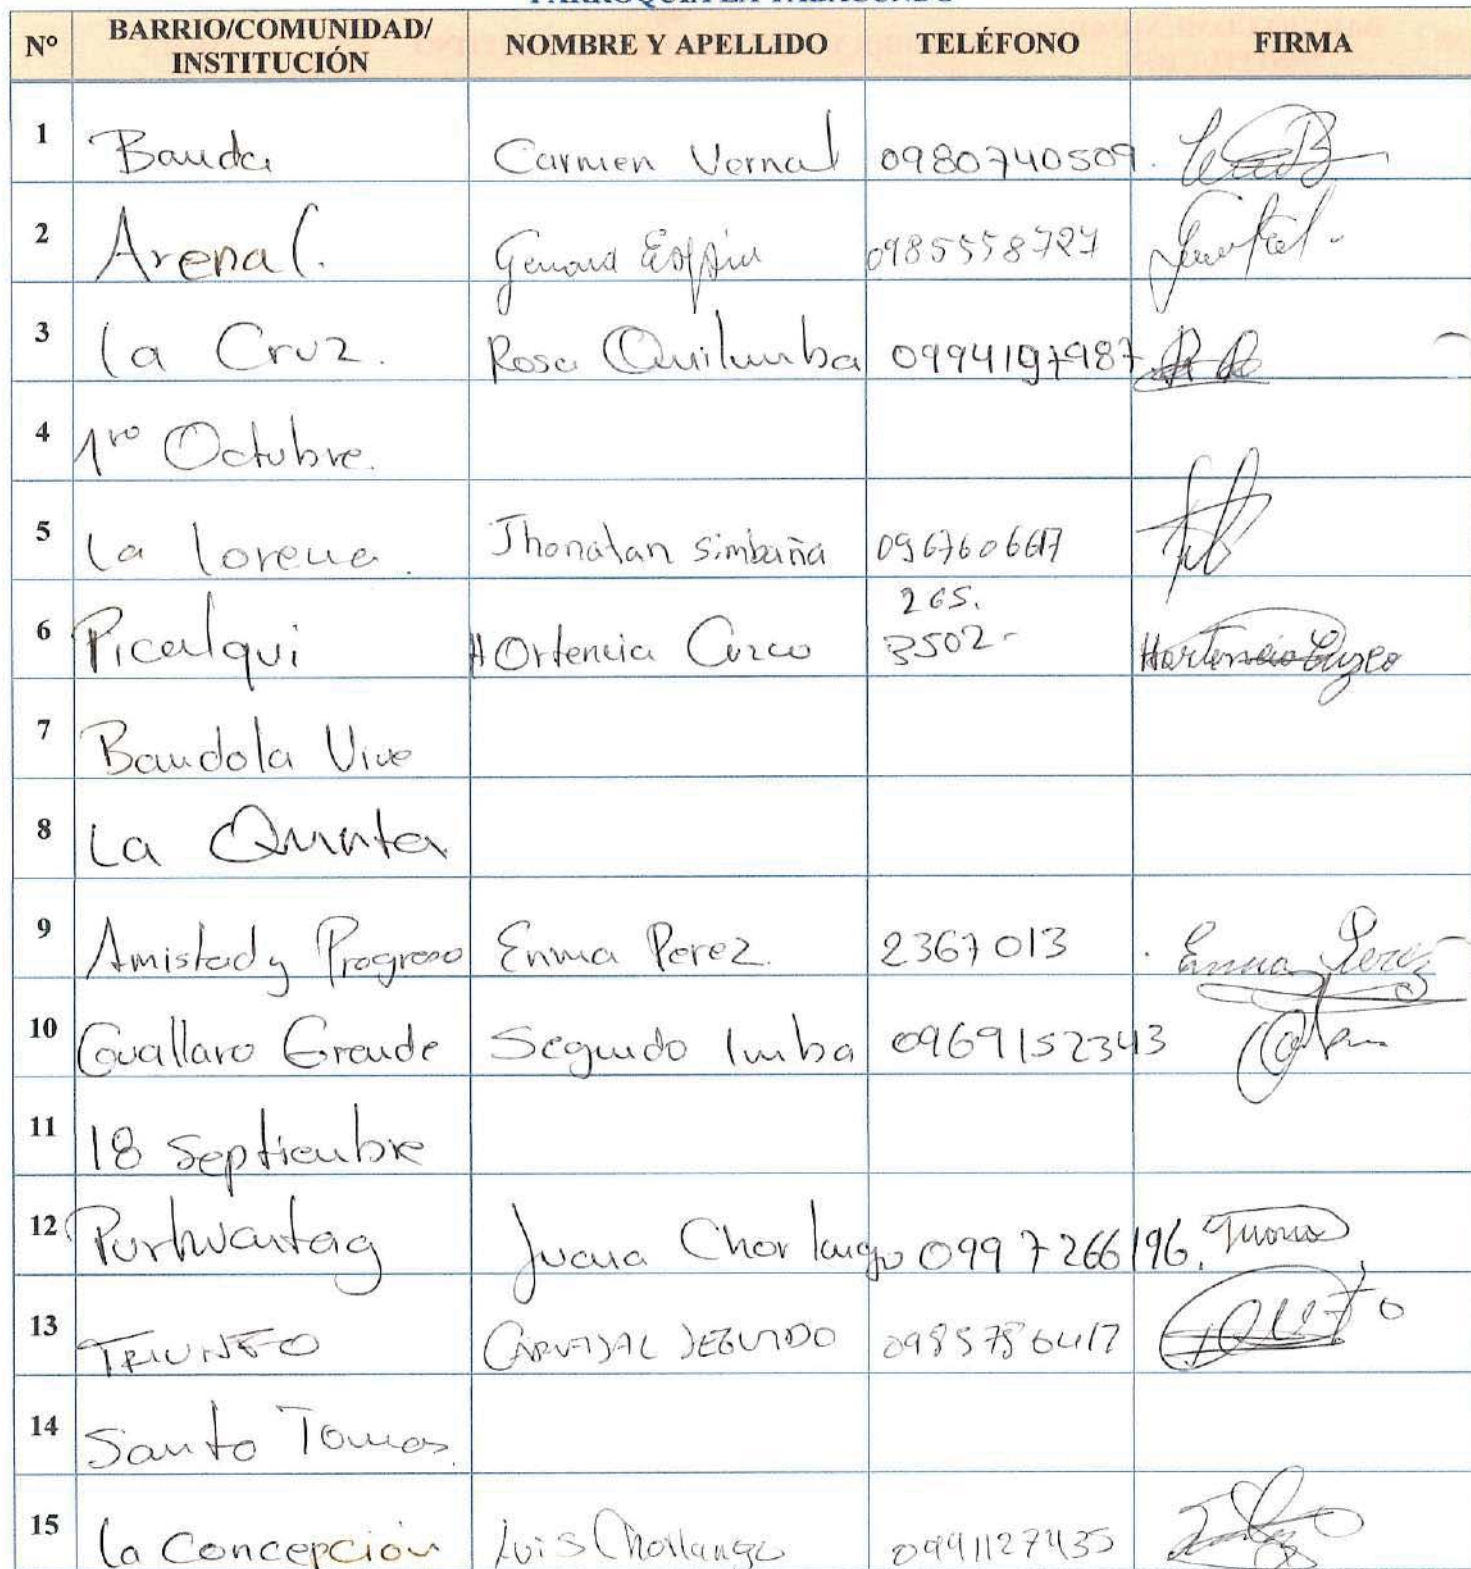 PARROQUIA LA TABACUNDO
N° BARRIO/COMUNIDAD/ INSTITUCIÓN NOMBRE Y APELLIDO TELÉFONO FIRMA
1 Banda Carmen Vernal 0980740509.
2 Arenal. 0985558727
3 la Cruz. Rosa Quilumba 0994197987
4 1ro Octubre.
5 la lorena. Jhonatan simbaña 0967606617
6 Picalqui HOrtencia Cuzco 265. 3502- Hortencia Cuzco
7 Bandola Vive
8 La Quinta
9 Amistad y Progreso Enma Perez. 2367013 Emma Perez
10 Cuallaro Grande Segundo Imba 0969152343
11 18 Septiembre
12 Purhuantag Juana Chorlango 0997266196. Juana
13 TRIUNFO CARVAJAL SEGUNDO 0985786417
14 Santo Tomas.
15 la Concepción Luis Chorlango 0991127435